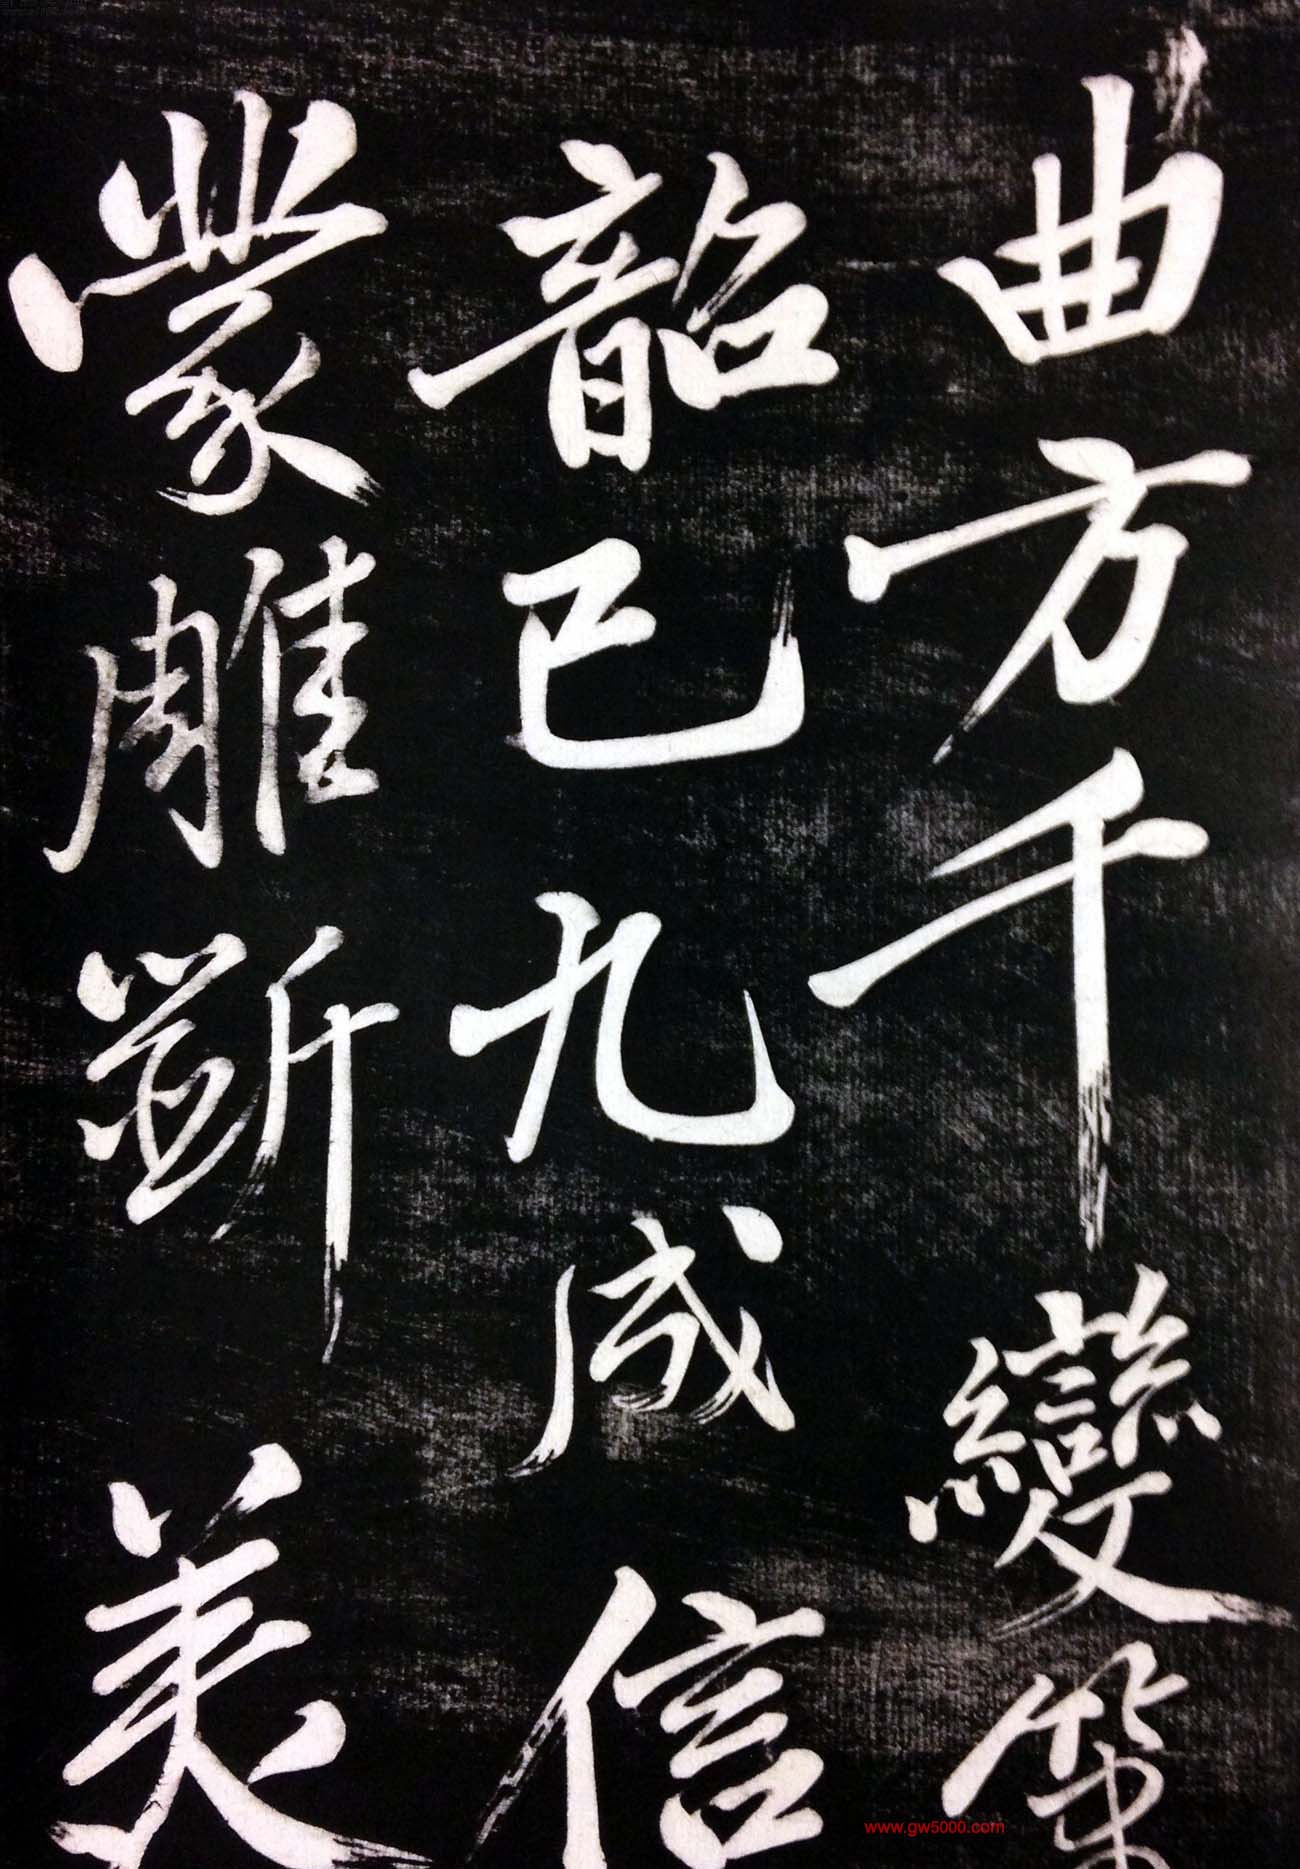 曲方千變
韶已九成信
蒙雕斲美
www.gw5000.com